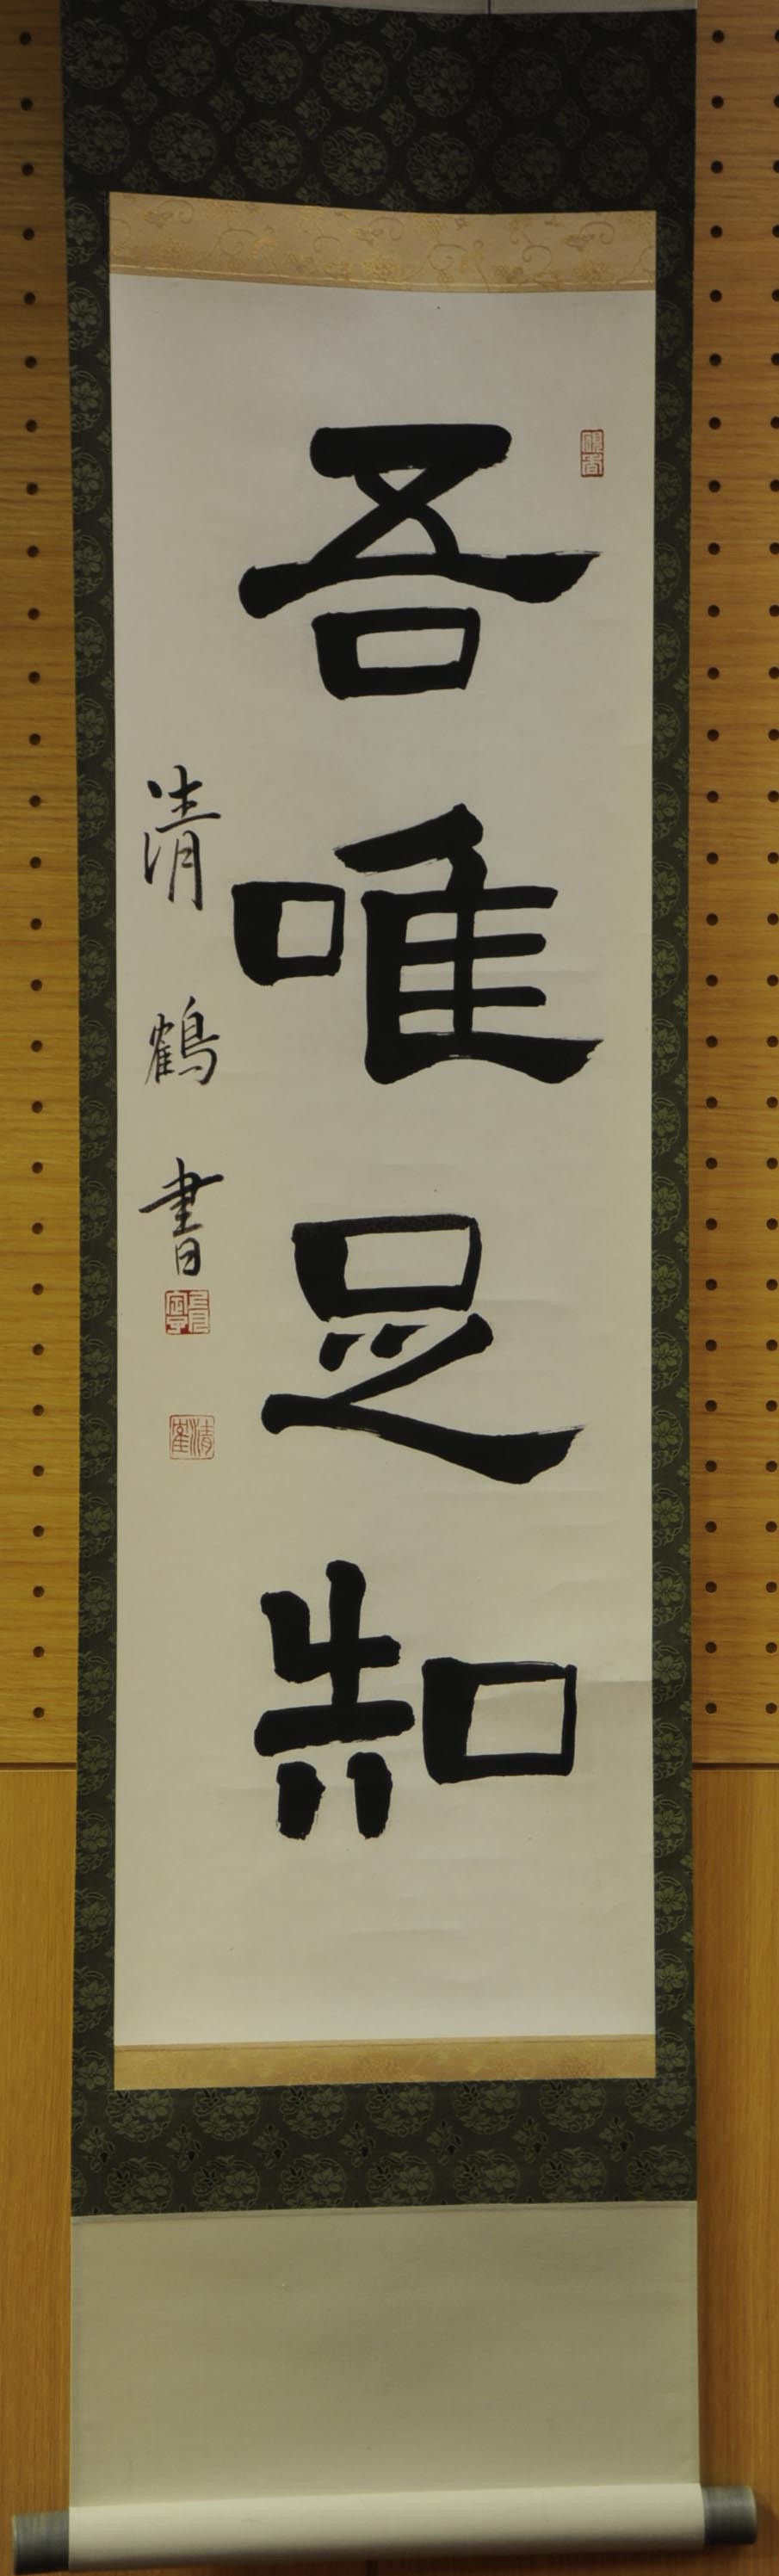 吾唯足知
清鶴書
清隺